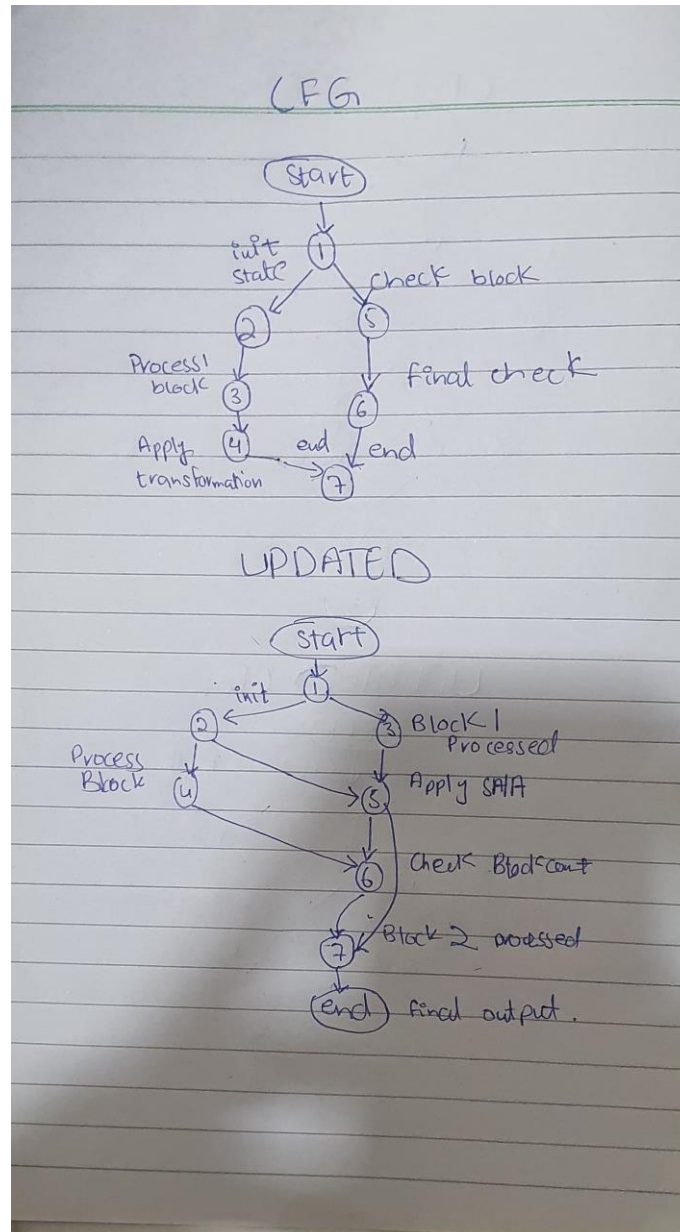 CFG
Start
1
init
state
check block
2
5
Process1
block
final check
3
6
Apply
transformation
4
end
end
7
UPDATED
Start
1
init
2
3
Block 1
Processed
Process
Block
4
5
Apply SAIA
6
Check Block cont
7
Block 2 processed
end
final output.